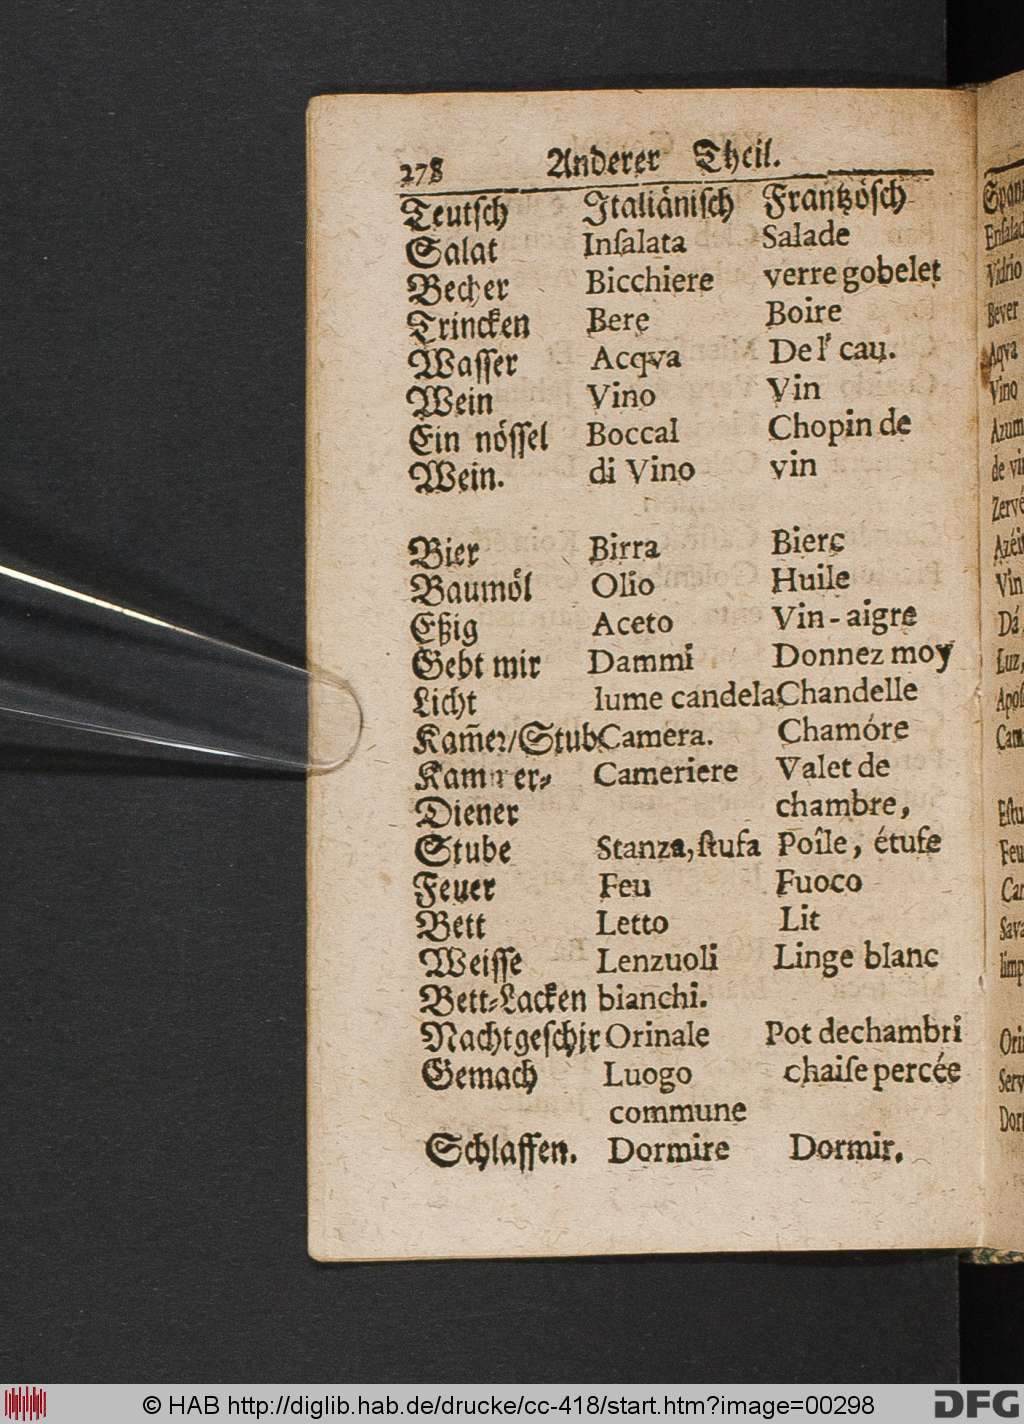 278 Anderer Theil.
Teutſch Italiäniſch Frantzöſch
Salat Inſalata Salade
Becher Bicchiere verre gobelet
Trincken Bere Boire
Waſſer Acqva De l' cau.
Wein Vino Vin
Ein nöſſel Boccal Chopin de
Wein. di Vino vin
Bier Birra Bierc
Baumöl Olio Huile
Eßig Aceto Vin-aigre
Gebt mir Dammi Donnez moy
Licht lume candela Chandelle
Kam̃er/Stub Camera. Chamóre
Kammer- Cameriere Valet de
Diener chambre,
Stube Stanza, ſtufa Poîle, étufe
Feuer Feu Fuoco
Bett Letto Lit
Weiſſe Lenzuoli Linge blanc
Bett-Lacken bianchi.
Nachtgeſchir Orinale Pot dechambri
Gemach Luogo chaiſe percée
commune
Schlaffen. Dormire Dormir.
Vidrio
Bever
Aqva
Vino
de vin
Dá
Luz,
© HAB http://diglib.hab.de/drucke/cc-418/start.htm?image=00298 DFG